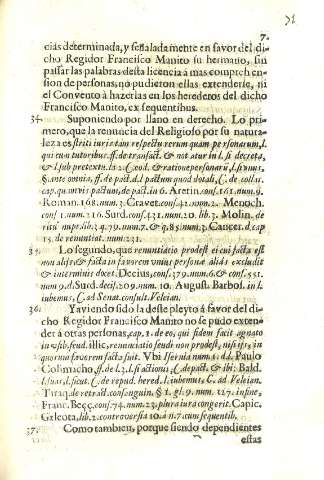 7.
cias determinada, y señaladamente en favor del di-
cho Regidor Francisco Manito su hermano, sin
passar las palabras desta licencia à mas comprehen
sion de personas, no pudieron ellas extenderse, ni
el Convento à hazerlas en los herederos del dicho
Francisco Manito, ex sequentibus.
34. Suponiendo por llano en derecho. Lo pri-
mero, que la renuncia del Religioso por su natura-
leza es stricti iuris tam respectu rerum quàm personarum, l.
qui cum tutoribus ff. de transact. & notatur in l. si decreta,
& l. sub pretextu il 2. C. eod. & ratione personarū, l. si unus,
§. ante omnia, ff. de pact. d. l. pactum quod dotali, C. de collat.
cap. quāvis pactum, de pact. in 6. Aretin. cons. 161. num. 9.
Roman. 168. num. 3. Gravet. cons. 41. num. 2. Menoch.
cons. 1. num. 216. Surd. cons. 431. num. 20. lib. 3. Molin. de
ritu nupt. lib. 3. q. 79. num. 7. & q. 85. num. 3. Cancer. d. cap
15. de renuntiat. num. 231.
35. Lo segundo, que renuntiatio prodest ei cui facta est
non alijs: & facta in favorem unius personæ aliàs excludit
& interminis docet. Decius, cons. 379. num. 6. & cons. 551.
num. 9. d. Surd. decis. 209. num. 10. August. Barbos. in l.
iubemus, C. ad Senat. consult. Veleian.
36. Y aviendo sido la deste pleyto à favor del di-
cho Regidor Francisco Manito no se pudo exten-
der à otras personas, cap. 1. de eo, qui sidem facit agnato
in usib. feud. illic, renuntiatio feudi non prodest, nisi ijs, in
quorum favorem facta fuit. Vbi Isernia num. 1. dd. Paulo
Colimacho, ff. de l. 3. l. si actionis; C. de pact. & ibi: Bald.
l. suus, l. sicut. C. de repud. hered. l. iubemus, C. ad Veleian.
Tiraq. de retract. consanguin. § 1. gl. 9. num. 127. in fine,
Franc. Becc. cons. 74. num. 23. plura iura congerit. Capic.
Galeota, lib. 2. controversia 10. à n. 7. cum sequentib.
37. Como tambien, porque siendo dependientes
estas